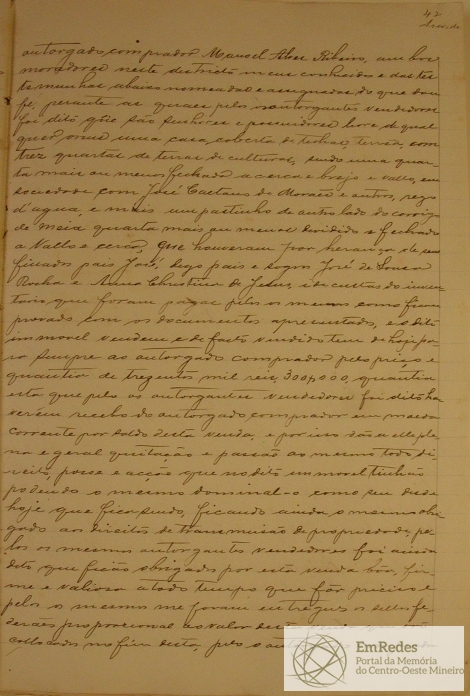 42
autorgado comprador Manoel Alves Ribeiro, ambos
moradores neste districto meus conhecidos e das tes
temunhas abaixo nomeadas e assignadas do que dou
fé, perante as quaes pelos outorgantes vendedores
foi dito q̃ são senhores e possuidores livre de qual
quer onus uma casa coberta de telhas, terrea, com
trez quartas de terras de culturas, sendo uma quar
ta mais ou menos fechada a cerca e brejo e vallo, em
sociedade com José Caetano de Moraes e outros, rego
d'agua, e mais um pastinho de outro lado do corrego
de meia quarta mais au menos dividido e fechado
a Vallo e cerca, que houveram por herança de seus
finados pais José, digo pais e sogros José de Souza
Rocha e Anna Christina de Jesus, e de custas do inven
tario que foram pagas pelos os mesmos como ficou
provado com os documentos apresentados, e o dito
immovel vendem e de facto vendido tem de hoje pa
ra sempre ao autorgado comprador pelo preço e
quantia de trezentos mil reis, 300$000, quantia
esta que pelo os autorgantes vendedores foi dito ha
verem recebido do autorgado comprador em moeda
corrente por saldo desta venda, e por isso dão a elle ple
na e geral quitação e passão ao mesmo todo di
reito, posse e acção que no dito immovel tinhão
podendo o mesmo dominal-o como seu desde
hoje que fica sendo, ficando ainda o mesmo obri
gado aos direitos de transmissão de propriedade, pe
los os mesmos autorgantes vendedores foi ainda
dito que ficão obrigados por esta venda bôa, fir
me e valiosa a todo tempo que fôr preciso e
pelos os mesmos me foram entregues os sellos fe
deraes proporcional ao valor desta
collocados no fim desta, pelo o
EmRedes
Portal da Memória
do Centro-Oeste Mineiro